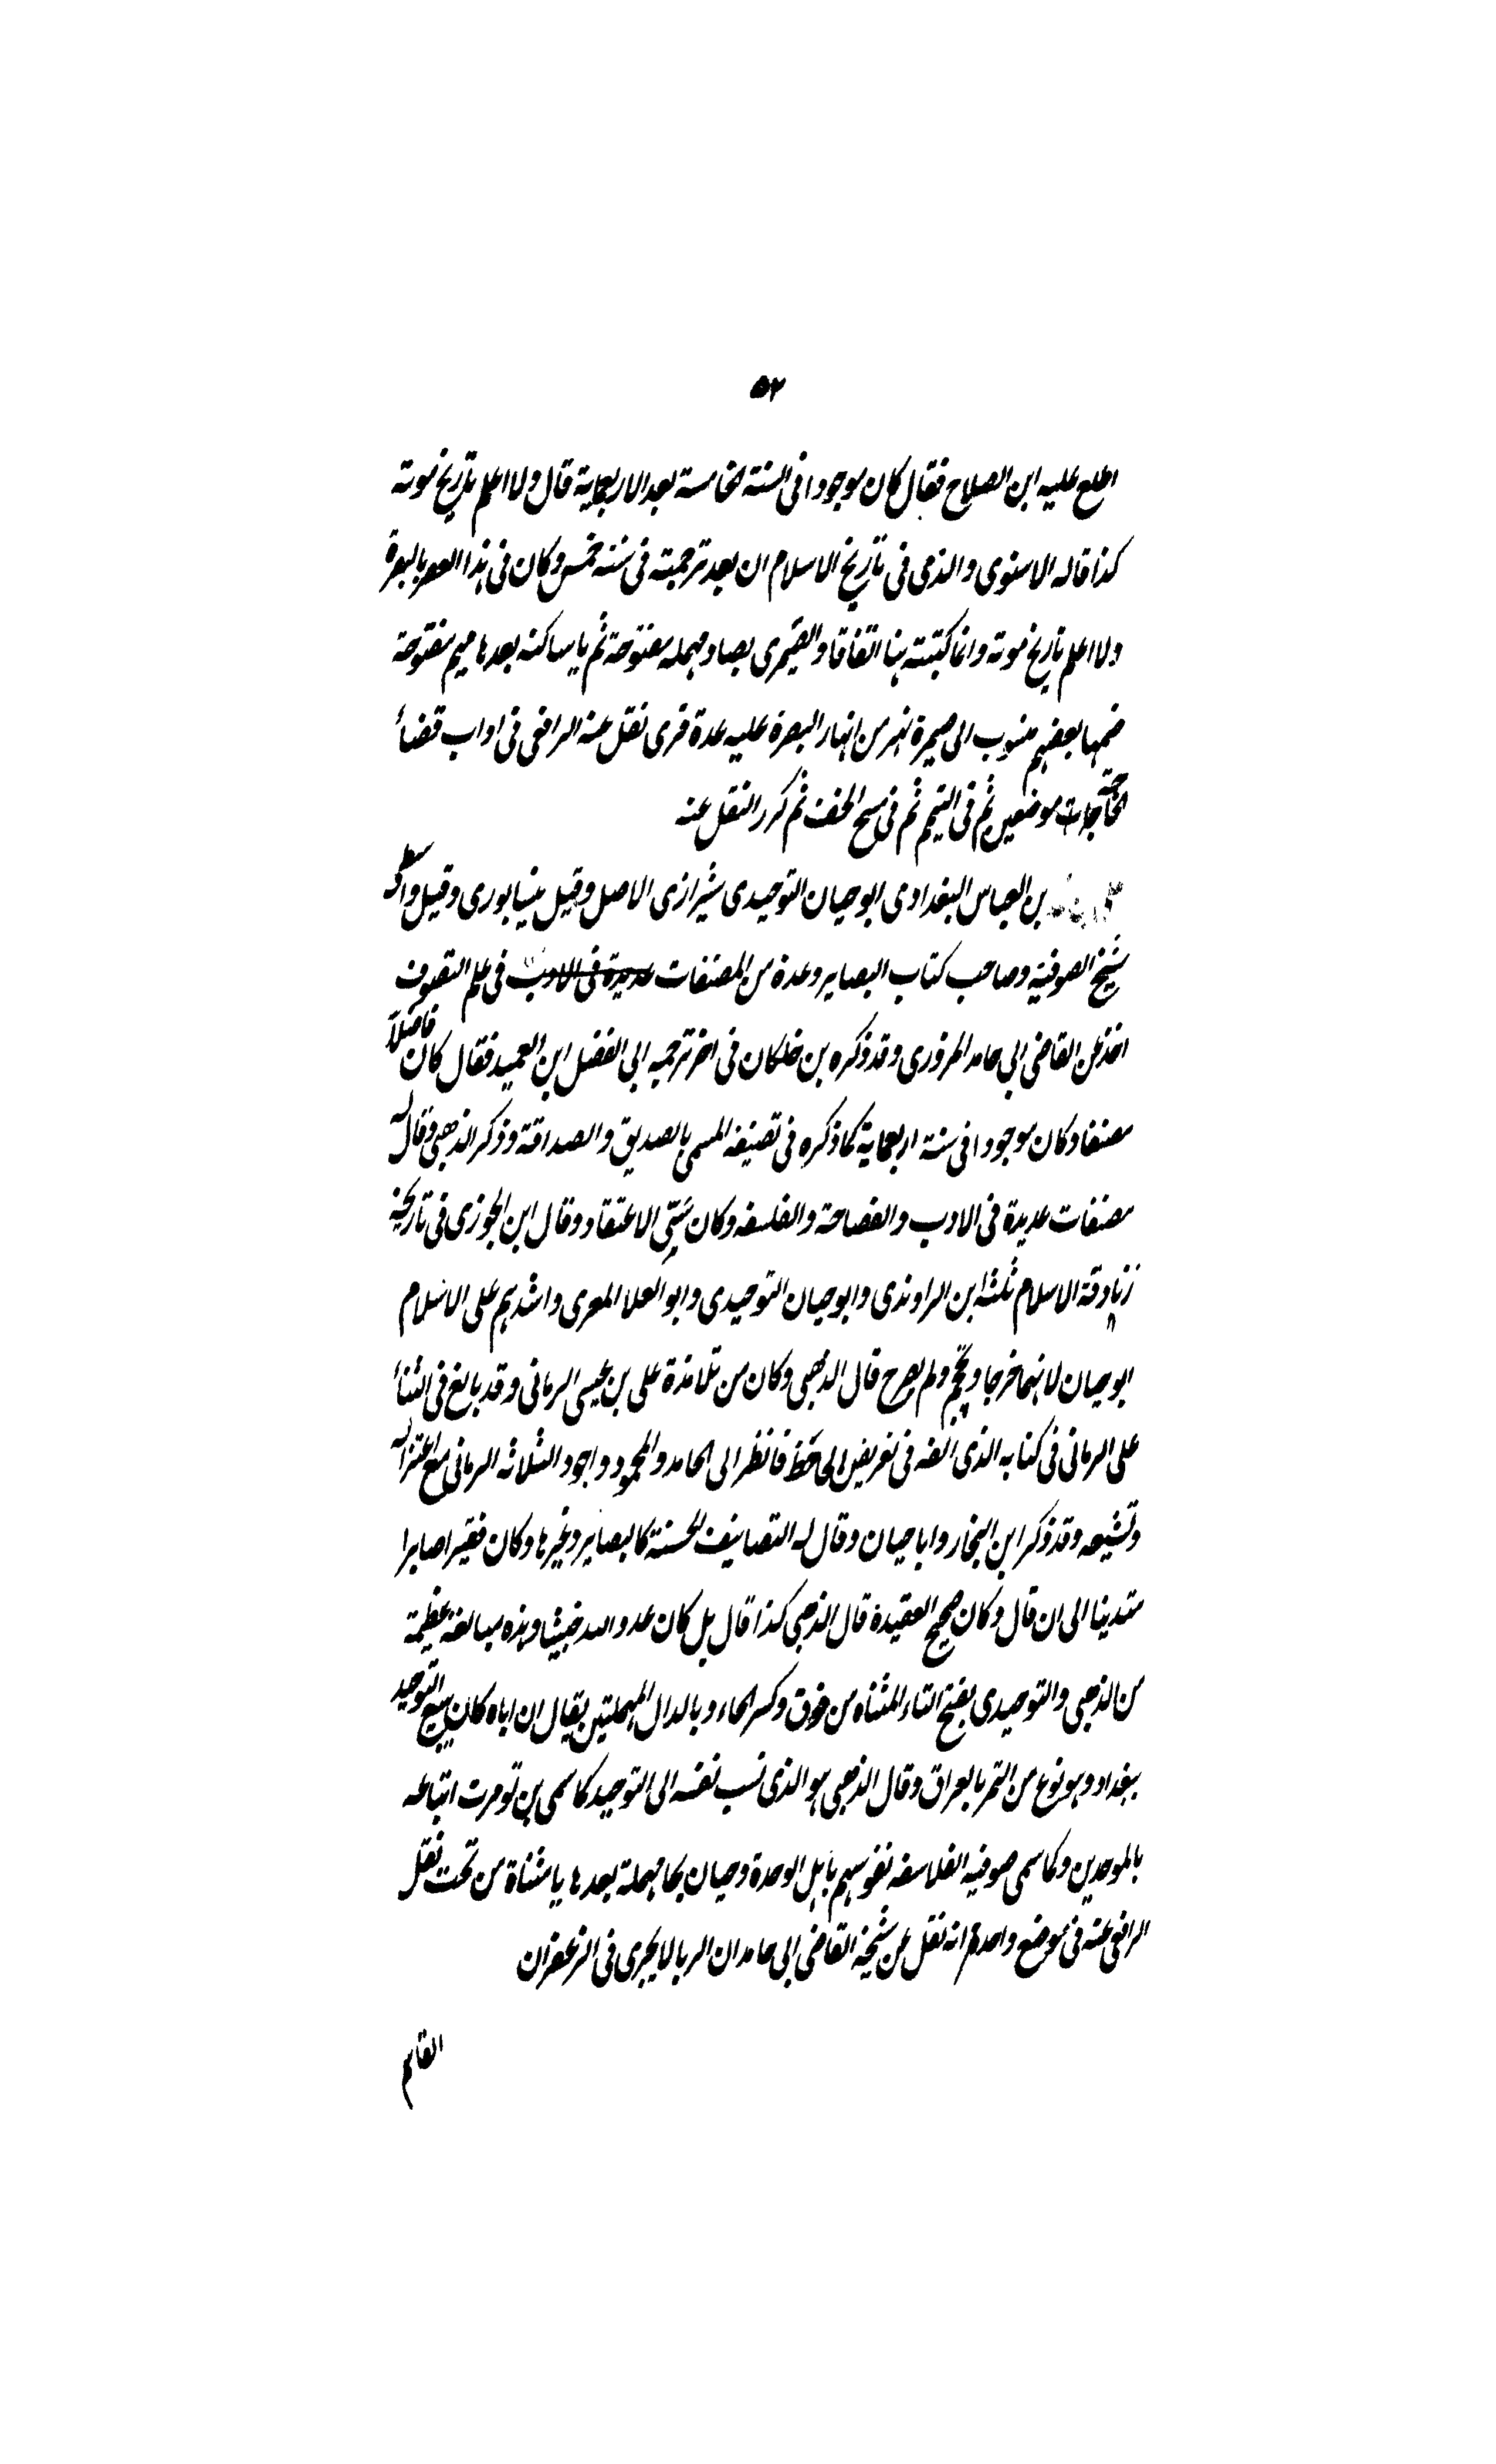 ٥٢
اطلع عليه ابن الصلاح فقال كان موجودا فى السنة الخامسة بعد الاربعماية قال ولا اعلم تاريخ موته
كذا قاله الاسنوى والذى فى تاريخ الاسلام ان بعد ترجمته فى سنة خمس وكان فى هذا العصر بالبصرة
ولا اعلم تاريخ موته وانما كتبته هنا اتفاقا والصيمرى بصاد مهمله مفتوحة ثم يا ساكنه بعدها ميم مفتوحة
ضمها بعضهم منسوب الى صيمرة نهر من انهار البصرة عليه عدة قرى نقل عنه الرافعى فى اداب قضأ
الحاجة موضعين ثم فى التيمم ثم فى مسح الخف ثم كرر النقل عنه
على بن العباس البغدادى ابو حيان التوحيدى شيرازى الاصل وقيل نيسابورى وقيل واسطى
شيخ الصوفية وصاحب كتاب البصاير وعدة من المصنفات عديدة فى الادب فى علم التصوف
اخذ عن القاضى ابى حامد المروزى وقد ذكره بن خلكان فى اخر ترجمه ابى الفضل ابن العميد فقال كان فاضلاً
مصنفا وكان موجودا فى سنة اربعماية كما ذكره فى تصنيفه المسمى بالصديق والصداقة وذكر الذهبى وقال له
مصنفات عديدة فى الادب والفصاحة والفلسفه وكان سَيّئ الاعتقاد وقال ابن الجوزى فى تاريخه
زنادقة الاسلام ثلثة ابن الراوندى وابو حيان التوحيدى وابو العلا المعرى واشدهم على الاسلام
ابو حيان لانهما خرجا ومجمج ولم يصرح قال الذهبى وكان من تلامذة على بن عيسى الرمانى وقد بالغ فى الثنأ
على الرمانى فى كتابه الذى الفه فى تقريض الجاحظ فانظر الى الحامد والمحمود واجود الثلاثه الرمانى مع اعتزاله
وتشيعه وقد ذكر ابن النجار وابا حيان وقال له التصانيف الحسنة كالبصاير وغيرها وكان فقيرا صابرا
متدينا الى ان قال وكان صحيح العقيدة قال الذهبى كذا قال بل كان عدو الله خبيثا وهذه مبالغة عظيمة
من الذهبى والتوحيدى بفتح التاء المثناه من فوق وكسر الحاء وبالدال المهملتين يقال ان اباه كان يبيع التوحيد
ببغداد وهو نوع من التمر بالعراق وقال الذهبى هو الذى نسب نفسه الى التوحيد كما سمى بن تومرت اتباعه
بالموحدين وكما سمى صوفيه الفلاسفه نفوسهم باهل الوحدة وحيان بحا مهملة بعدها يا مثناة من تحت نقل
الرافعى عنه فى موضع واحد انه نقل عن شيخه القاضى ابى حامد ان الربا لا يجرى فى الزعفران
القاسم